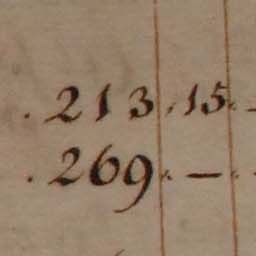 . 213 . 15 . -
. 269 . - .